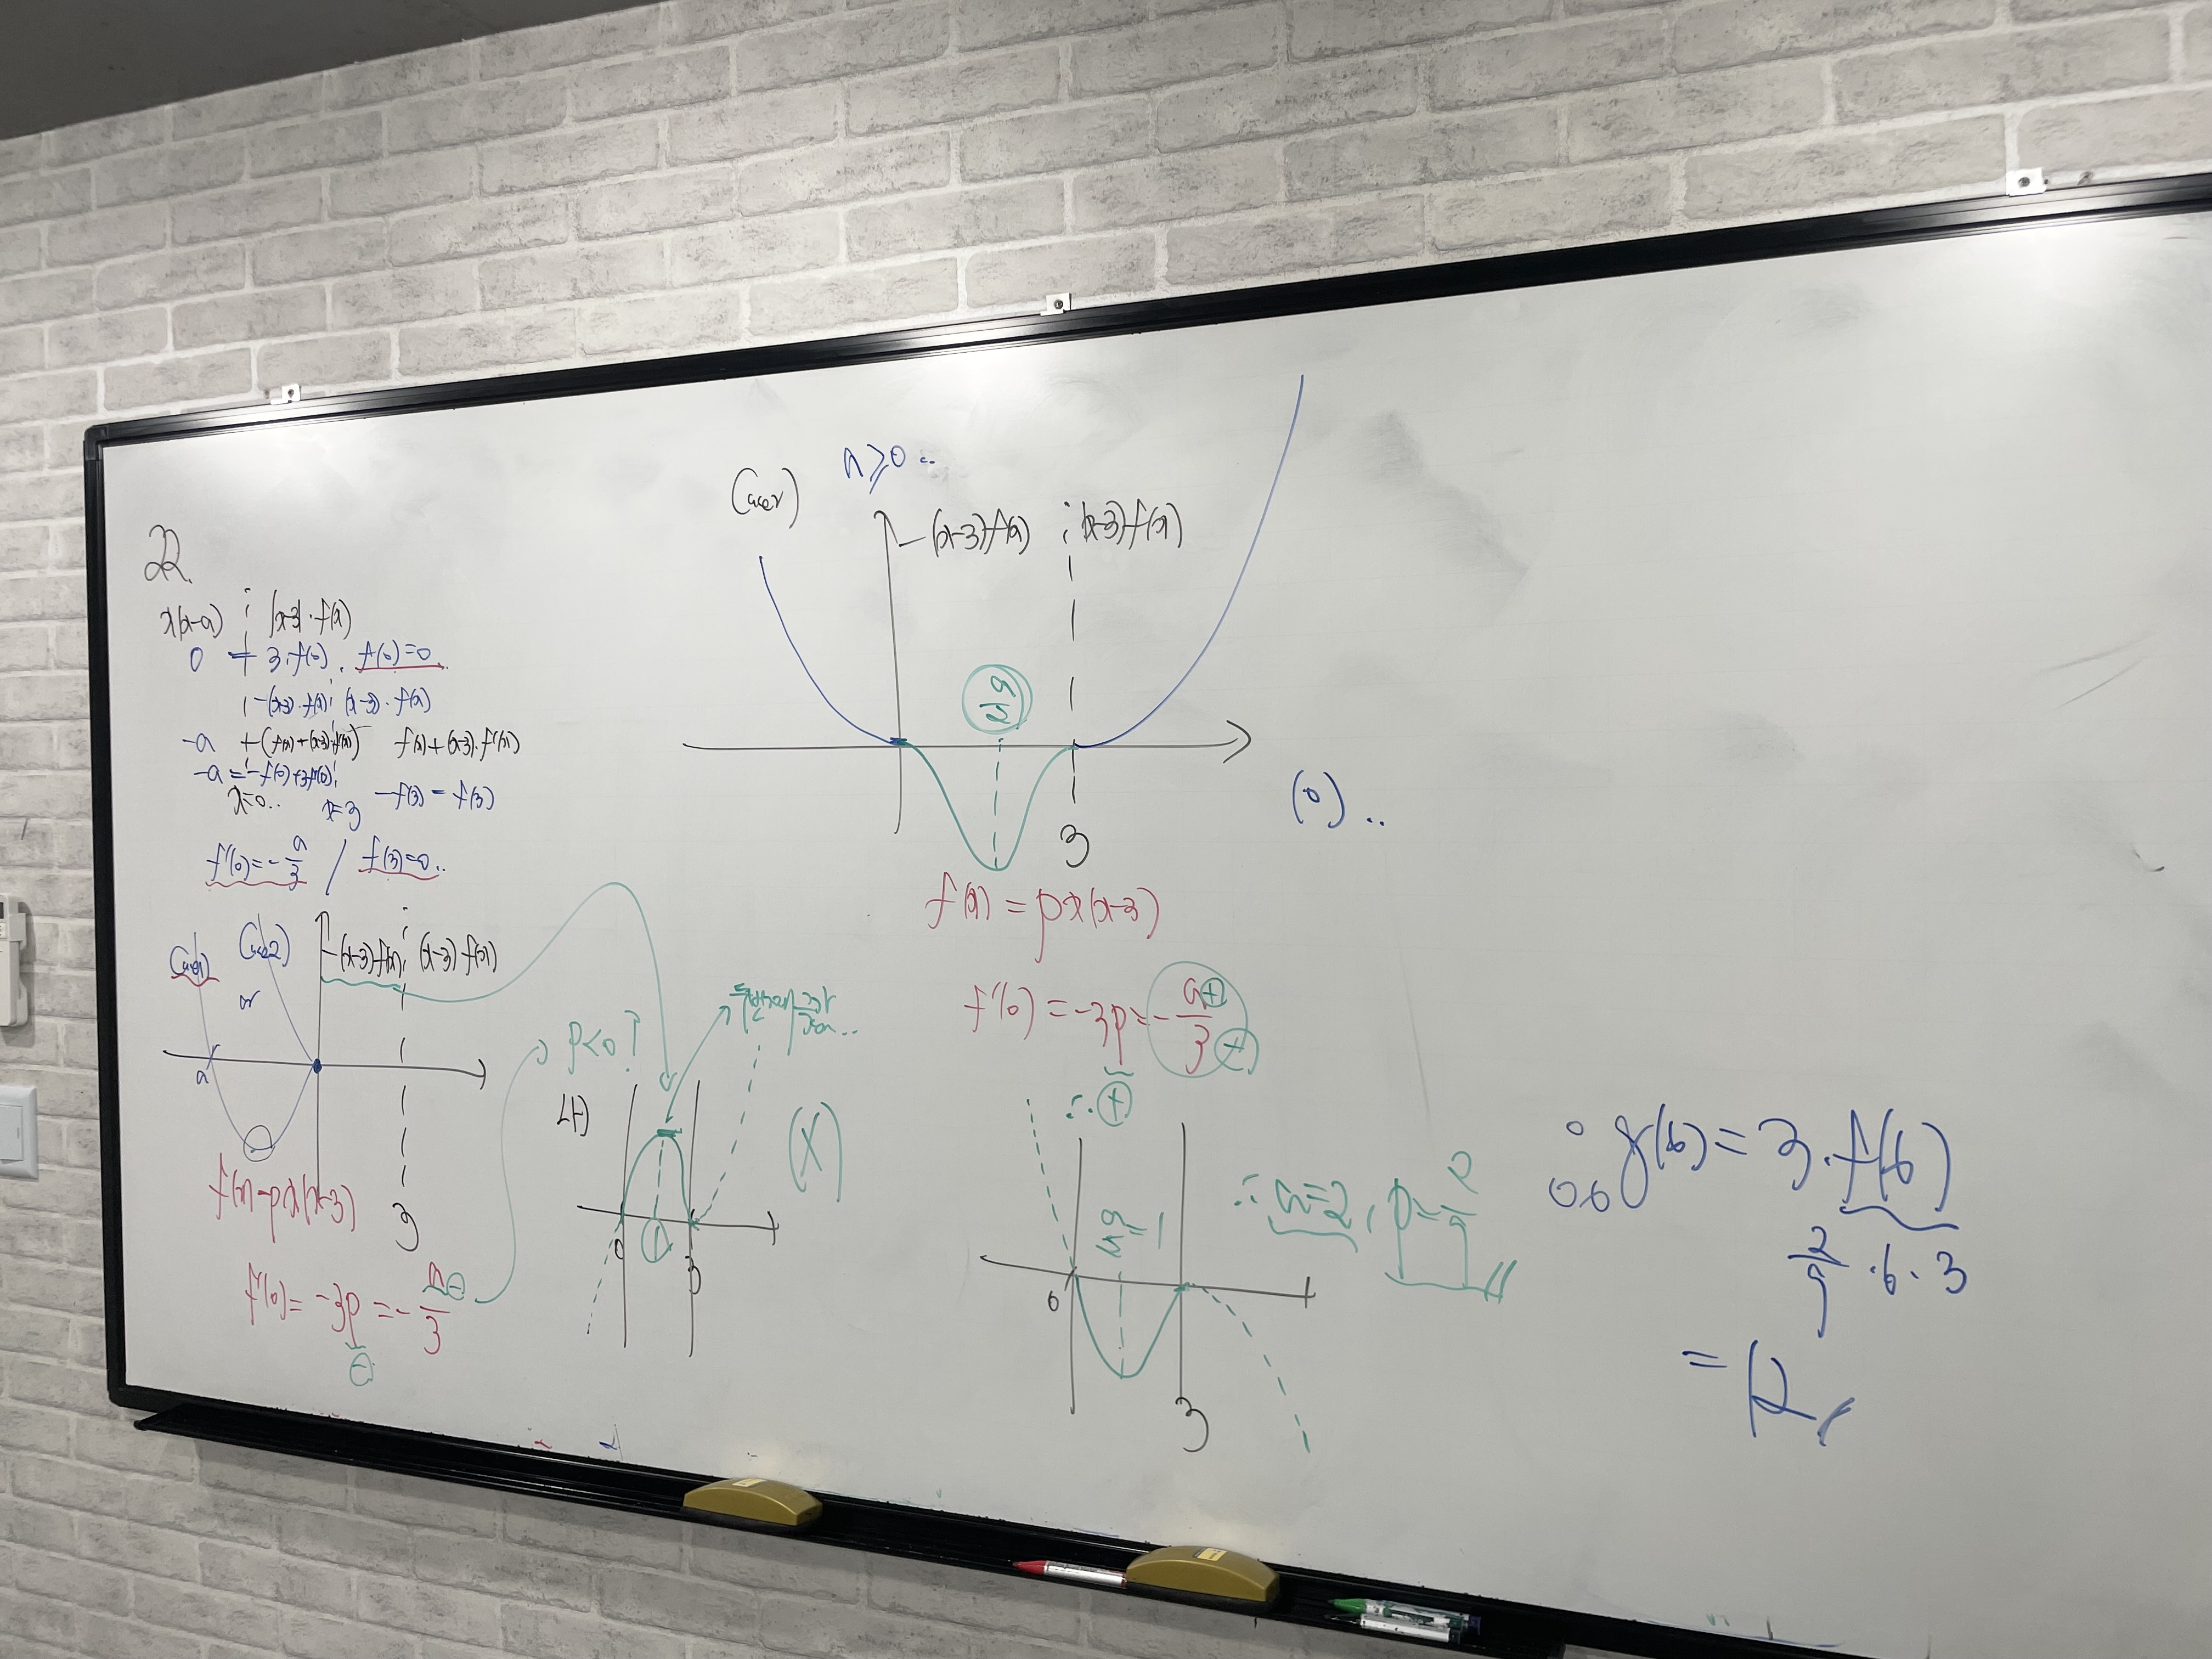 22.
x(x-a) ¦ |x-3|·f(x)
0 = 3·f(0). f(0)=0.
-(x-3)·f(x) ¦ (x-3)·f(x)
-a -(f(x)+(x-3)·f'(x)) f(x)+(x-3)·f'(x)
-a = -f(0)+3f'(0)
x=0.. x=3 -f(3) = f(3)
f'(0)=-a/3 / f(3)=0..
(case1) or (case2)
-(x-3)f(x) ¦ (x-3)·f(x)
a
3
f(x)=px(x-3)
f'(0)= -3p = -a⊖/3
⊖
p<0?
(나)
0 1 3
(X)
(case2) a≥0..
-(x-3)f(x) ¦ (x-3)f(x)
a/2
3
(0)..
f(x) = px(x-3)
f'(0) = -3p = -a⊕/3⊕
∴ ⊕
a/2 = 1
0
3
∴ a=2, p=2/9
∴ g(6) = 3·f(6)
2/9 ·6·3
= 12